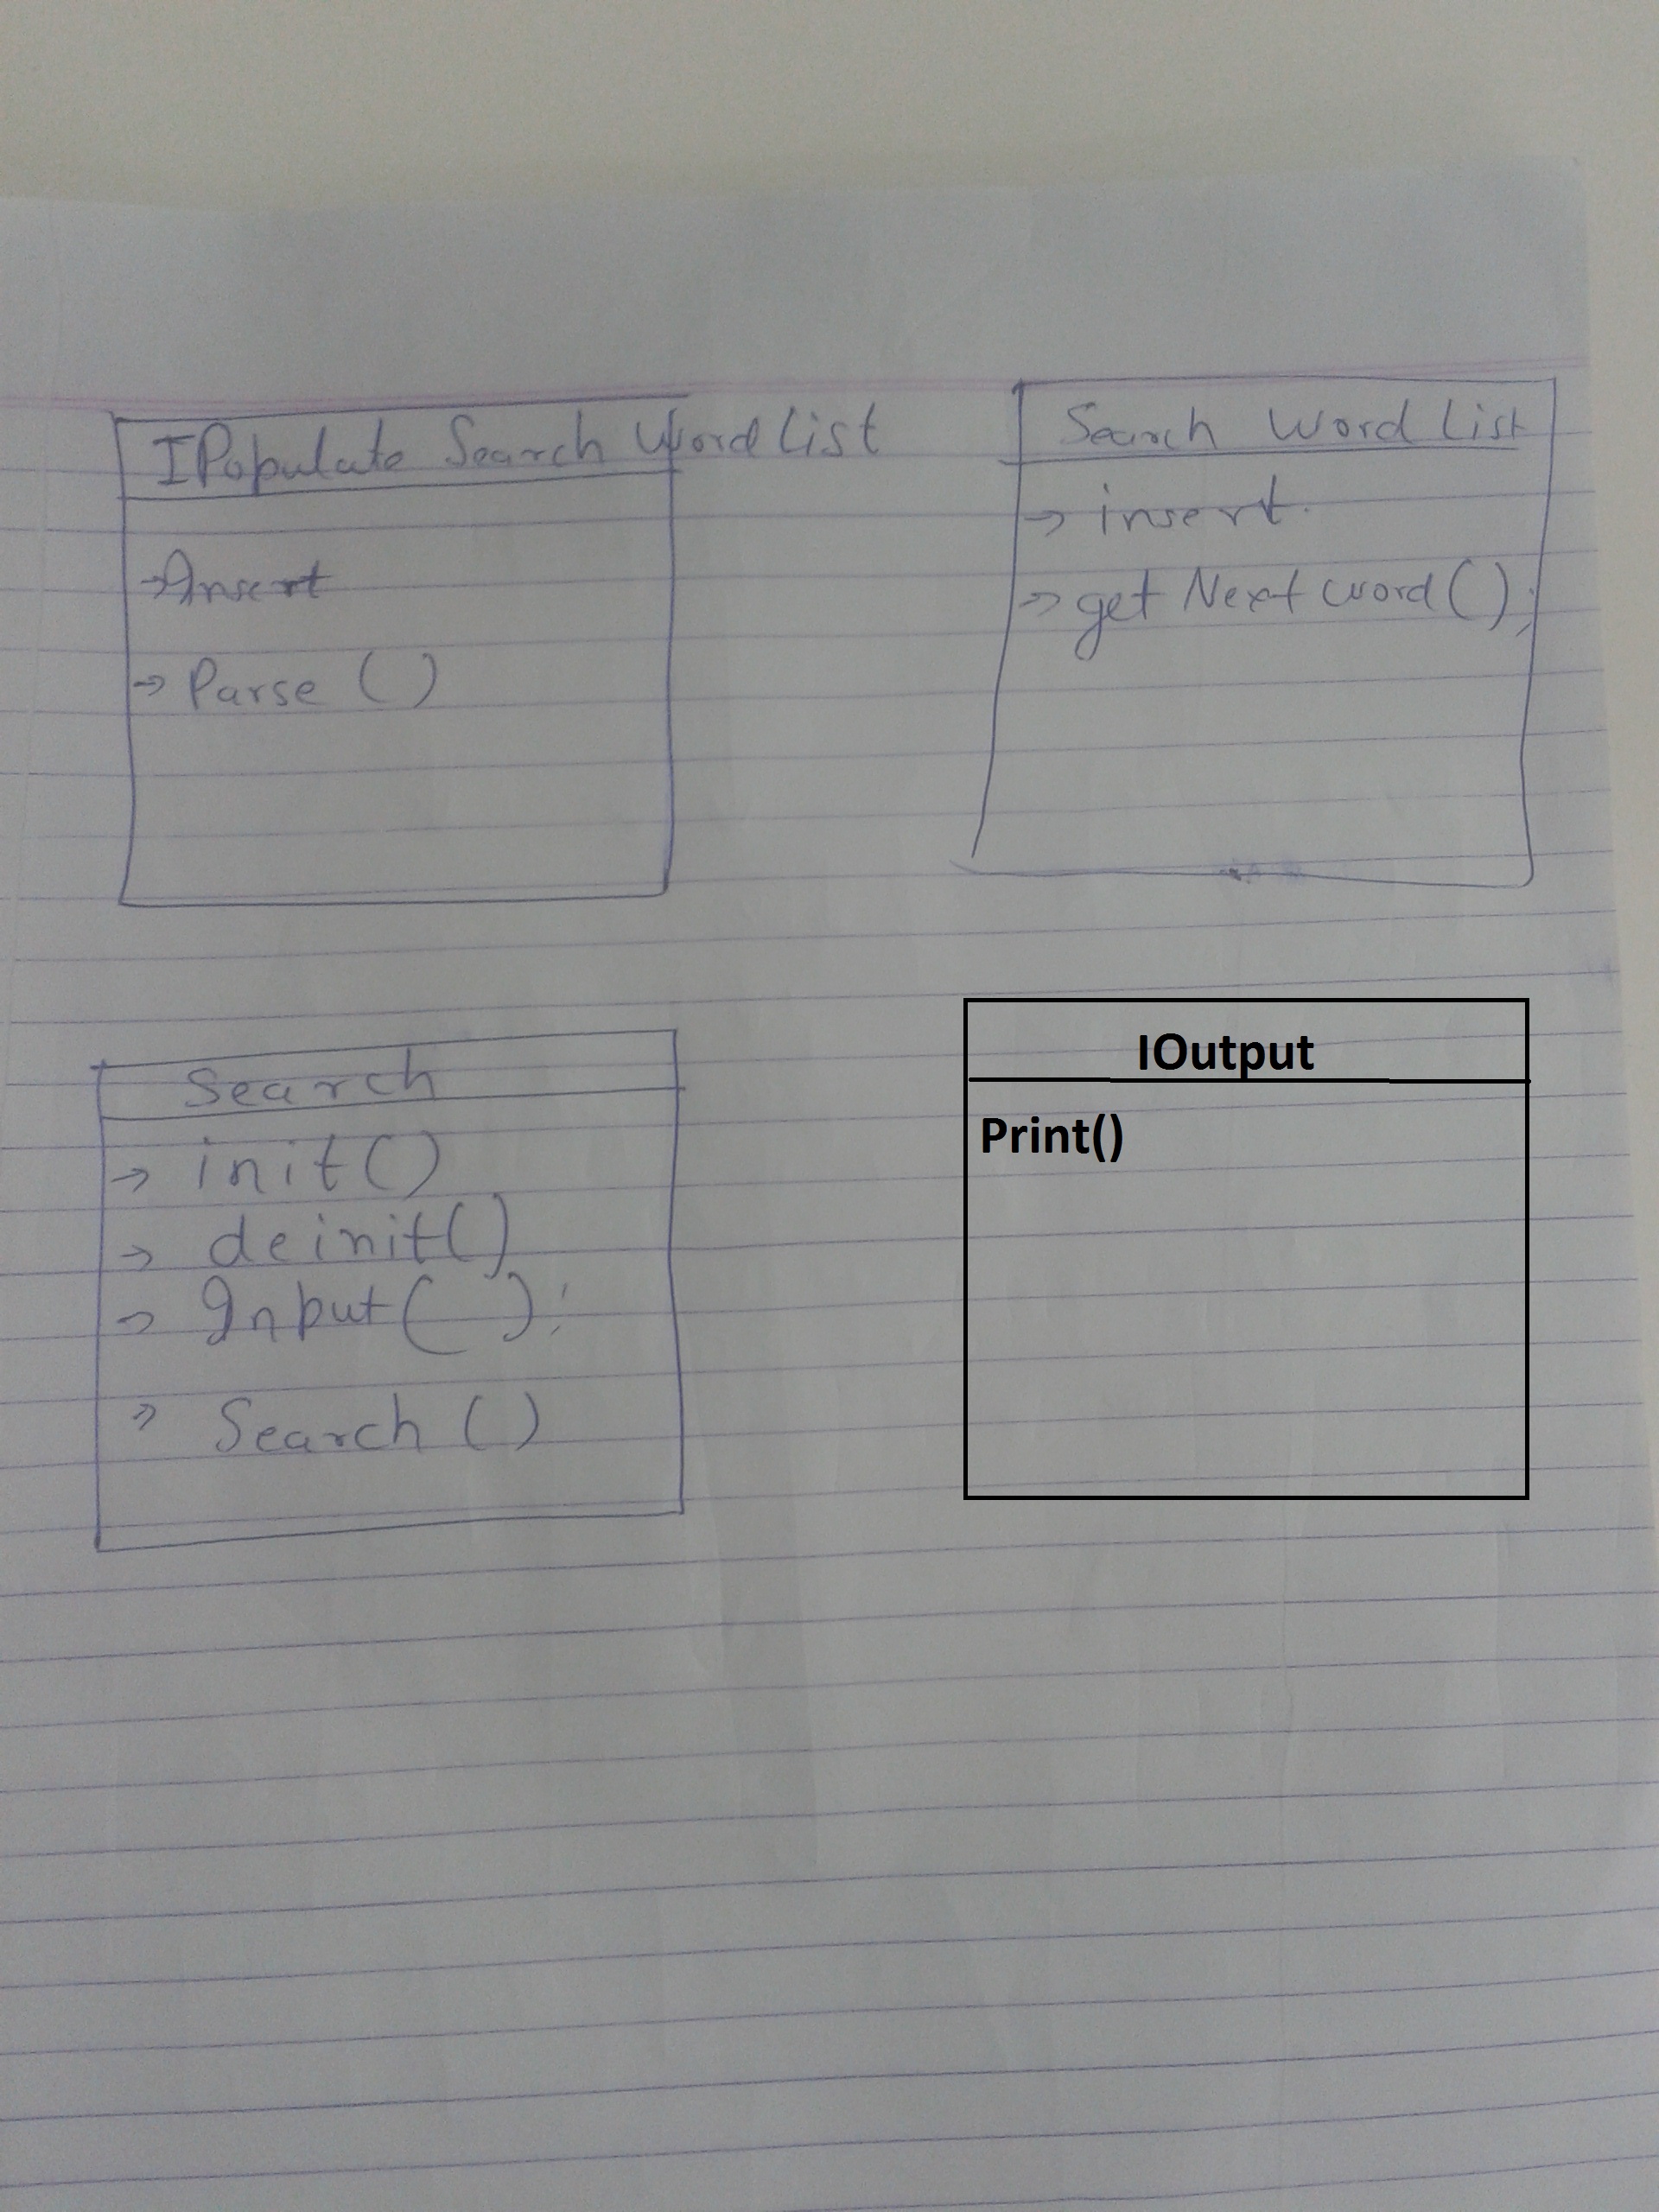 IPopulate Search Word List
→ Insert
→ Parse ()
Search Word List
→ insert.
→ get Next word();
Search
→ init()
→ deinit()
→ Input( );
→ Search ()
IOutput
Print()